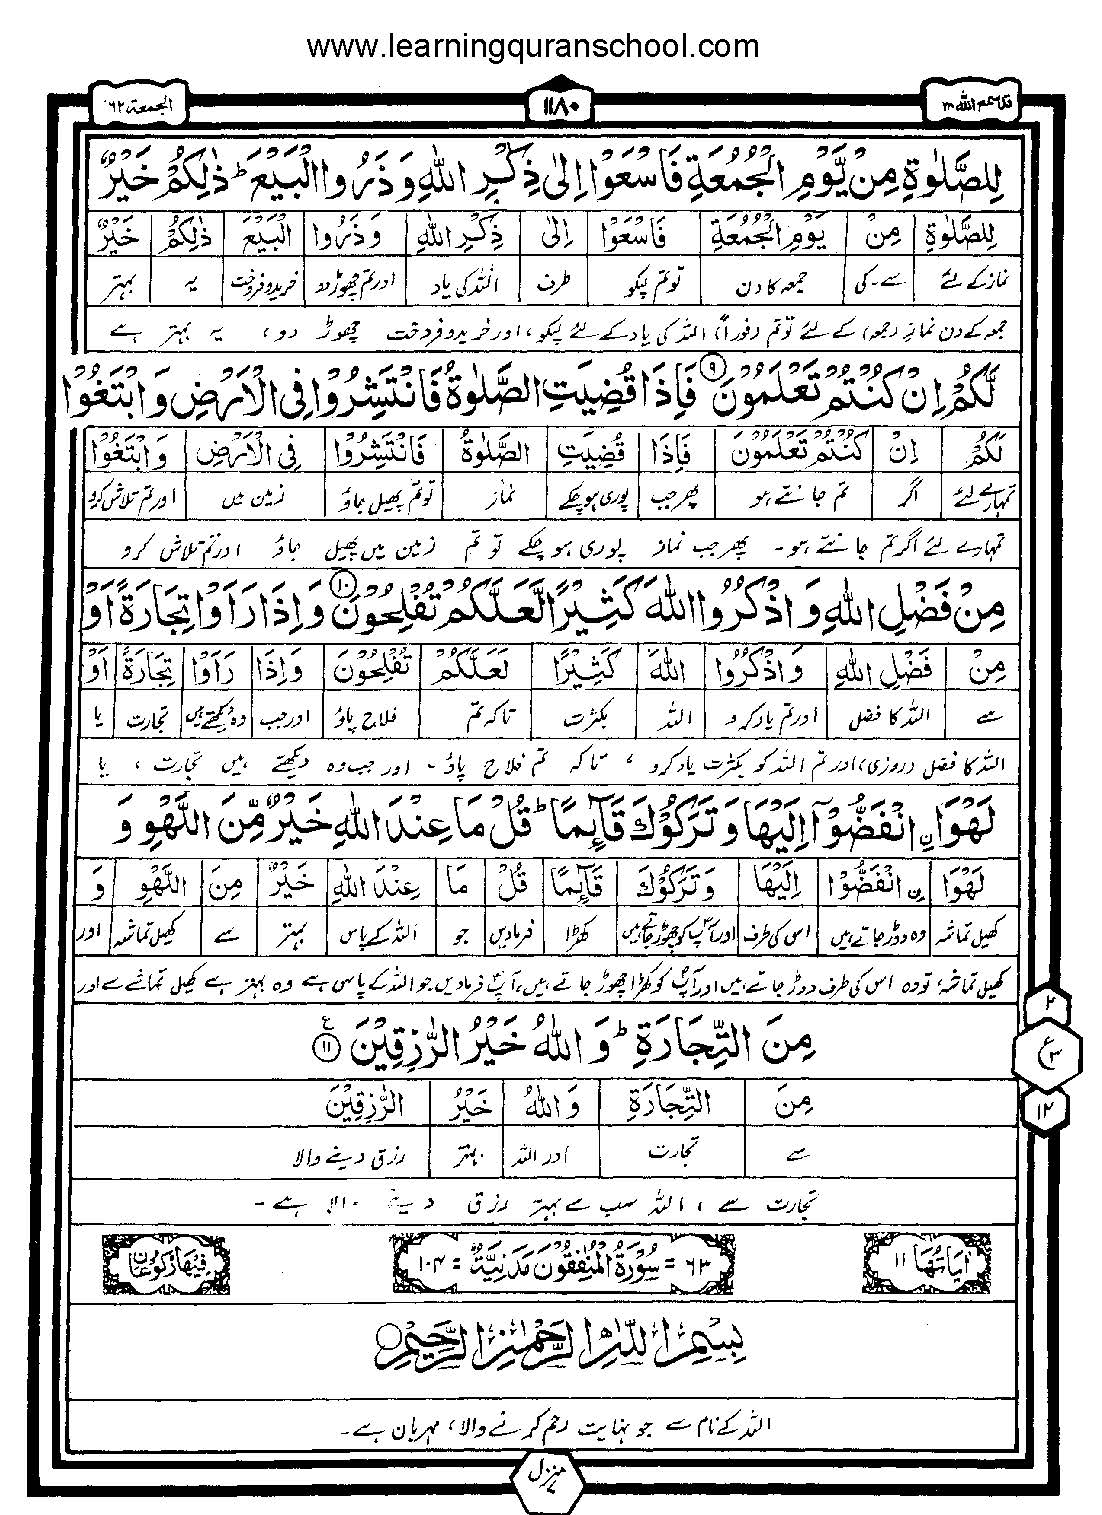 www.learningquranschool.com
قد سمع الله ۲۸
۱۱۸۰
الجمعة ۶۲
لِلصَّلٰوةِ مِنْ يَّوْمِ الْجُمُعَةِ فَاسْعَوْا اِلٰى ذِكْرِ اللّٰهِ وَ ذَرُوا الْبَيْعَ ؕ ذٰلِكُمْ خَيْرٌ
لِلصَّلٰوةِ مِنْ يَوْمِ الْجُمُعَةِ فَاسْعَوْا اِلٰى ذِكْرِ اللّٰهِ وَ ذَرُوا الْبَيْعَ ذٰلِكُمْ خَيْرٌ
نماز کے لئے سے۔کی جمعہ کا دن تو تم لپکو طرف اللہ کی یاد اور تم چھوڑ دو خرید و فروخت یہ بہتر
جمعہ کے دن نماز (جمعہ) کے لئے تو تم (فوراً) اللہ کی یاد کے لئے لپکو، اور خرید و فروخت چھوڑ دو، یہ بہتر ہے
لَّكُمْ اِنْ كُنْتُمْ تَعْلَمُوْنَ ۹ فَاِذَا قُضِيَتِ الصَّلٰوةُ فَانْتَشِرُوْا فِى الْاَرْضِ وَ ابْتَغُوْا
لَكُمْ اِنْ كُنْتُمْ تَعْلَمُوْنَ فَاِذَا قُضِيَتِ الصَّلٰوةُ فَانْتَشِرُوْا فِى الْاَرْضِ وَ ابْتَغُوْا
تمہارے لئے اگر تم جانتے ہو پھر جب پوری ہوچکے نماز تو تم پھیل جاؤ زمین میں اور تم تلاش کرو
تمہارے لئے اگر تم جانتے ہو۔ پھر جب نماز پوری ہو چکے تو تم زمین میں پھیل جاؤ اور تم تلاش کرو
مِنْ فَضْلِ اللّٰهِ وَ اذْكُرُوا اللّٰهَ كَثِيْرًا لَّعَلَّكُمْ تُفْلِحُوْنَ ۱۰ وَ اِذَا رَاَوْا تِجَارَةً اَوْ
مِنْ فَضْلِ اللّٰهِ وَ اذْكُرُوا اللّٰهَ كَثِيْرًا لَعَلَّكُمْ تُفْلِحُوْنَ وَ اِذَا رَاَوْا تِجَارَةً اَوْ
سے اللہ کا فضل اور تم یاد کرو اللہ بکثرت تاکہ تم فلاح پاؤ اور جب وہ دیکھتے ہیں تجارت یا
اللہ کا فضل (روزی)، اور تم اللہ کو بکثرت یاد کرو، تاکہ تم فلاح پاؤ۔ اور جب وہ دیکھتے ہیں تجارت، یا
لَهْوَا ِ۟انْفَضُّوْۤا اِلَيْهَا وَ تَرَكُوْكَ قَآئِمًا ؕ قُلْ مَا عِنْدَ اللّٰهِ خَيْرٌ مِّنَ اللَّهْوِ وَ
لَهْوَا ِ۟انْفَضُّوْا اِلَيْهَا وَ تَرَكُوْكَ قَآئِمًا قُلْ مَا عِنْدَ اللّٰهِ خَيْرٌ مِنَ اللَّهْوِ وَ
کھیل تماشہ وہ دوڑ جاتے ہیں اس کی طرف اور آپؐ کو چھوڑ جاتے ہیں کھڑا فرمادیں جو اللہ کے پاس بہتر سے کھیل تماشہ اور
کھیل تماشہ، تو وہ اس کی طرف دوڑ جاتے ہیں اور آپؐ کو کھڑا چھوڑ جاتے ہیں، آپؐ فرمادیں جو اللہ کے پاس ہے وہ بہتر ہے کھیل تماشے سے اور
مِنَ التِّجَارَةِ ؕ وَ اللّٰهُ خَيْرُ الرّٰزِقِيْنَ ۱۱ ع
مِنَ التِّجَارَةِ وَ اللّٰهُ خَيْرُ الرّٰزِقِيْنَ
سے تجارت اور اللہ بہتر رزق دینے والا
تجارت سے، اللہ سب سے بہتر رزق دینے والا ہے۔
۲
ع ۳
۱۲
اٰيَاتُهَا ۱۱
۶۳ = سُوْرَةُ الْمُنٰفِقُوْنَ مَدَنِيَّةٌ = ۱۰۴
فِيْهَا رُكُوْعَانِ
بِسْمِ اللّٰهِ الرَّحْمٰنِ الرَّحِيْمِ
اللہ کے نام سے جو نہایت رحم کرنے والا، مہربان ہے۔
منزل ۷